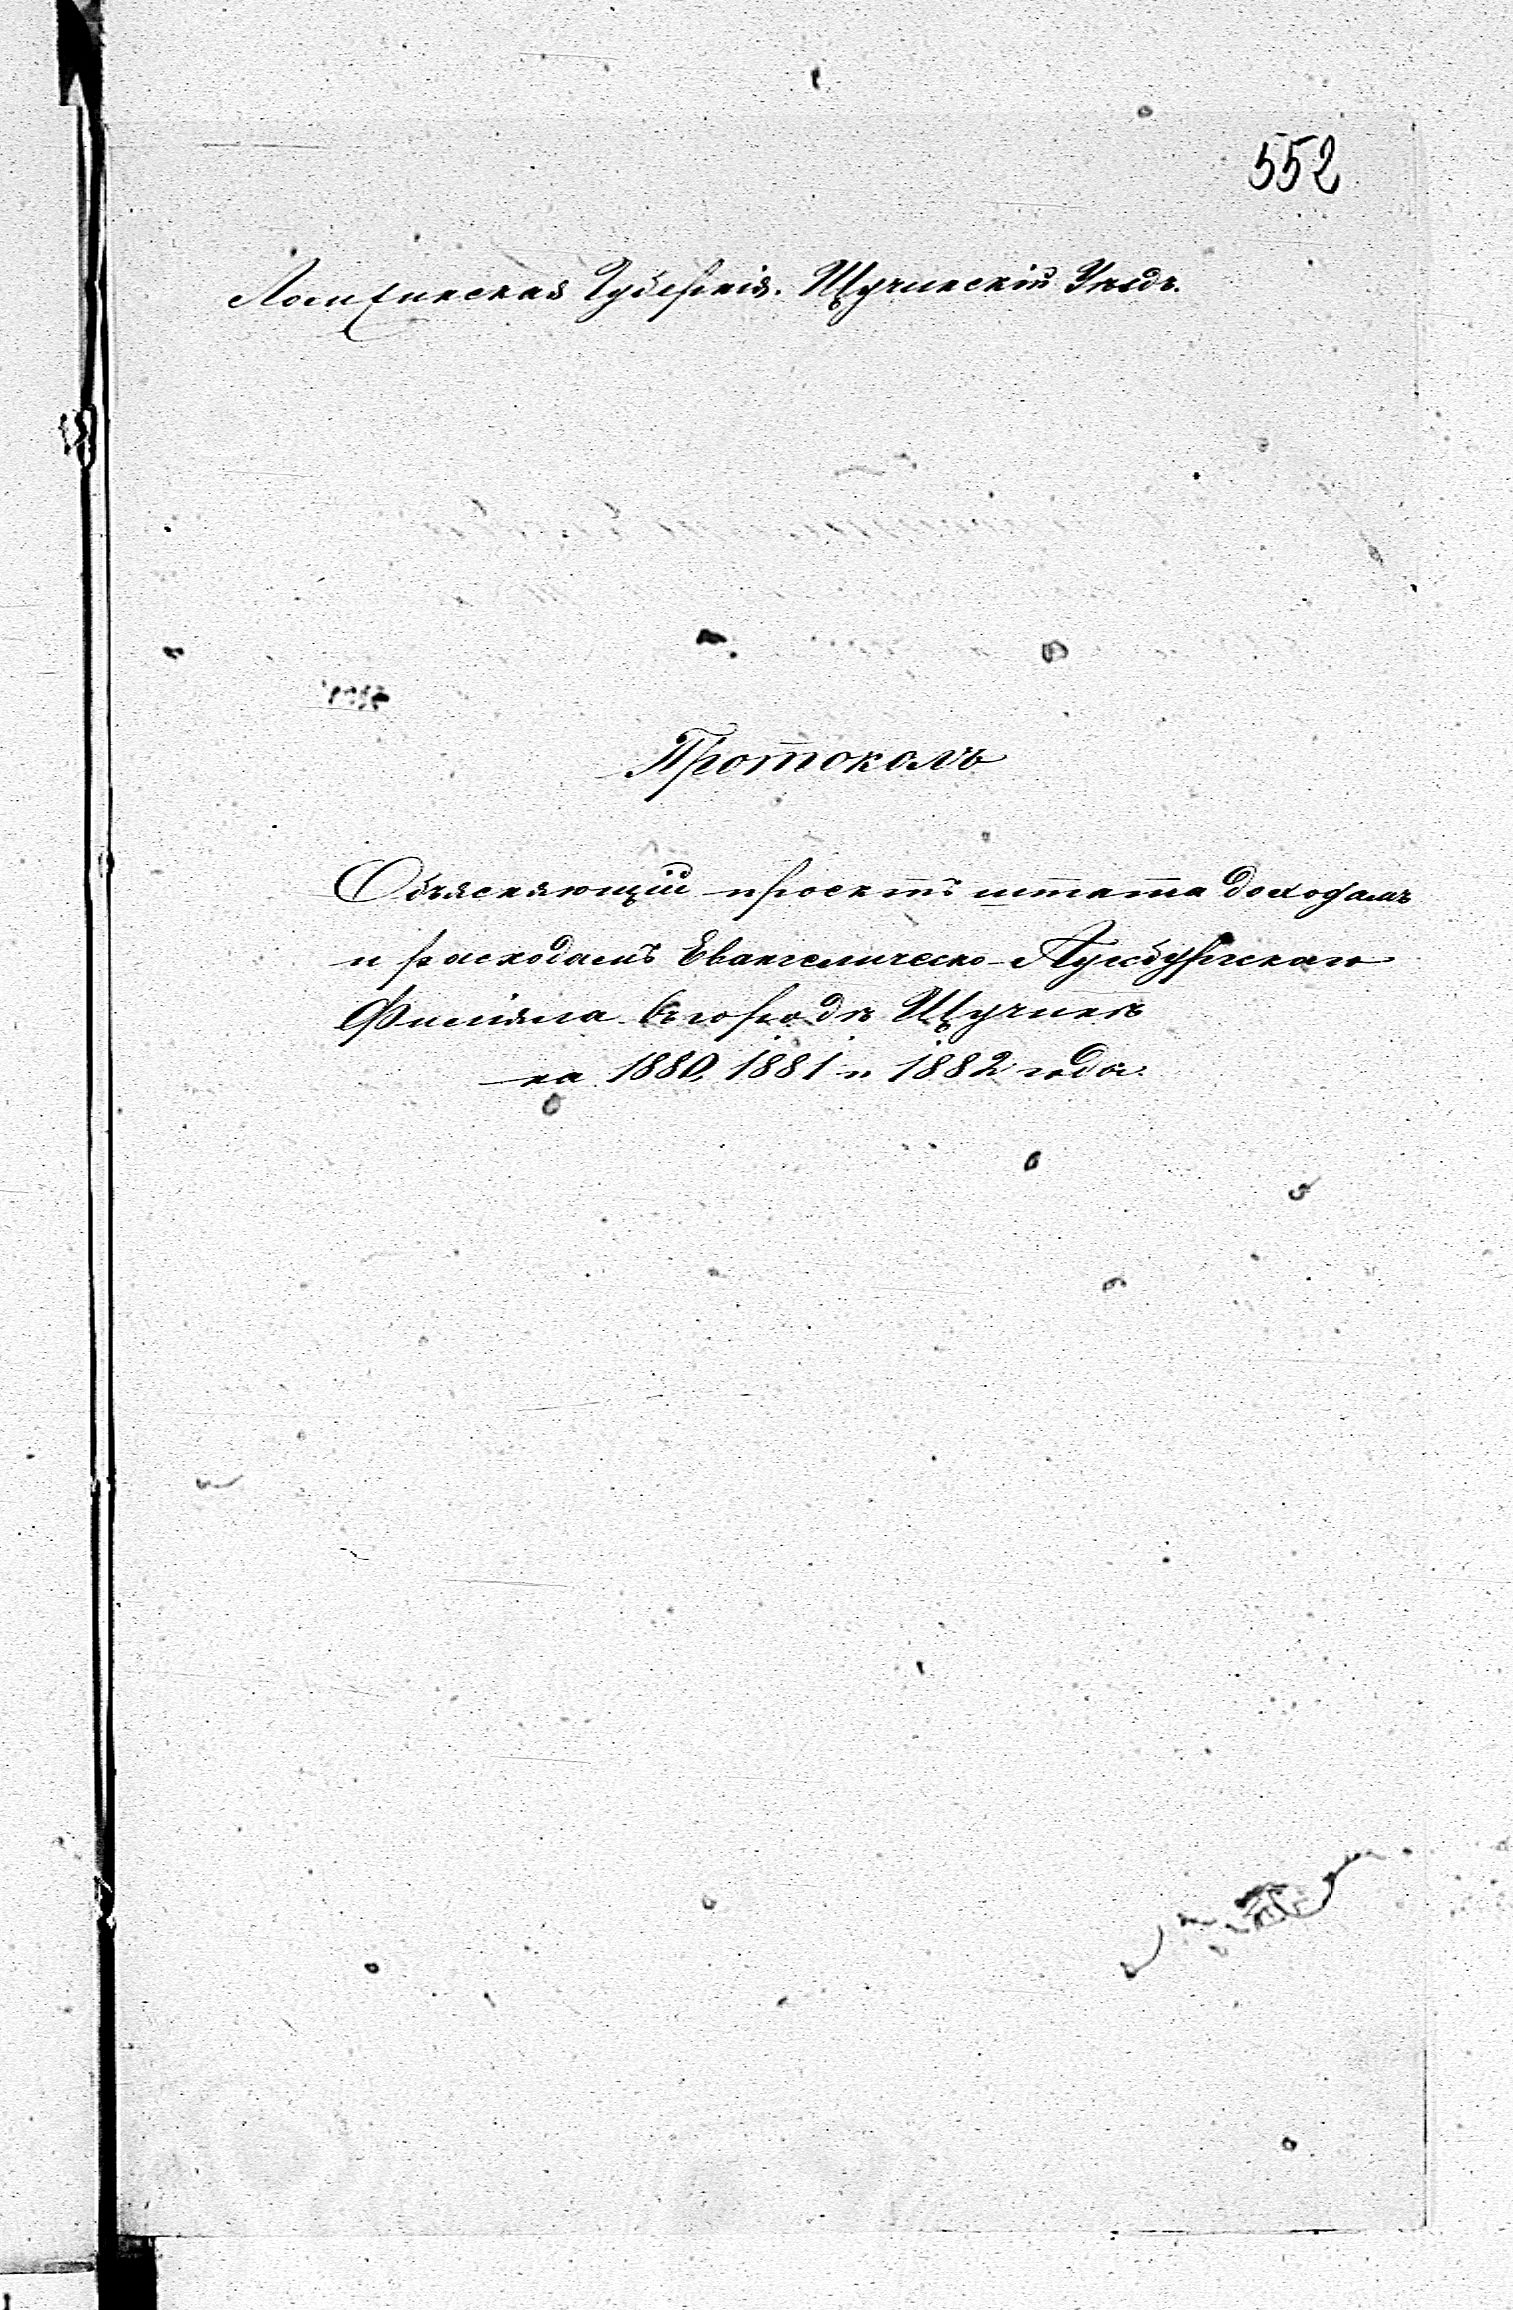 552
Ломжинская Губернія. Щучинскій Уѣздъ.
Протоколъ
Объясняющій проектъ штата доходамъ
и расходамъ Евангелическо-Аугсбургскаго
Филіяла въ городѣ Щучинѣ
на 1880, 1881 и 1882 года.